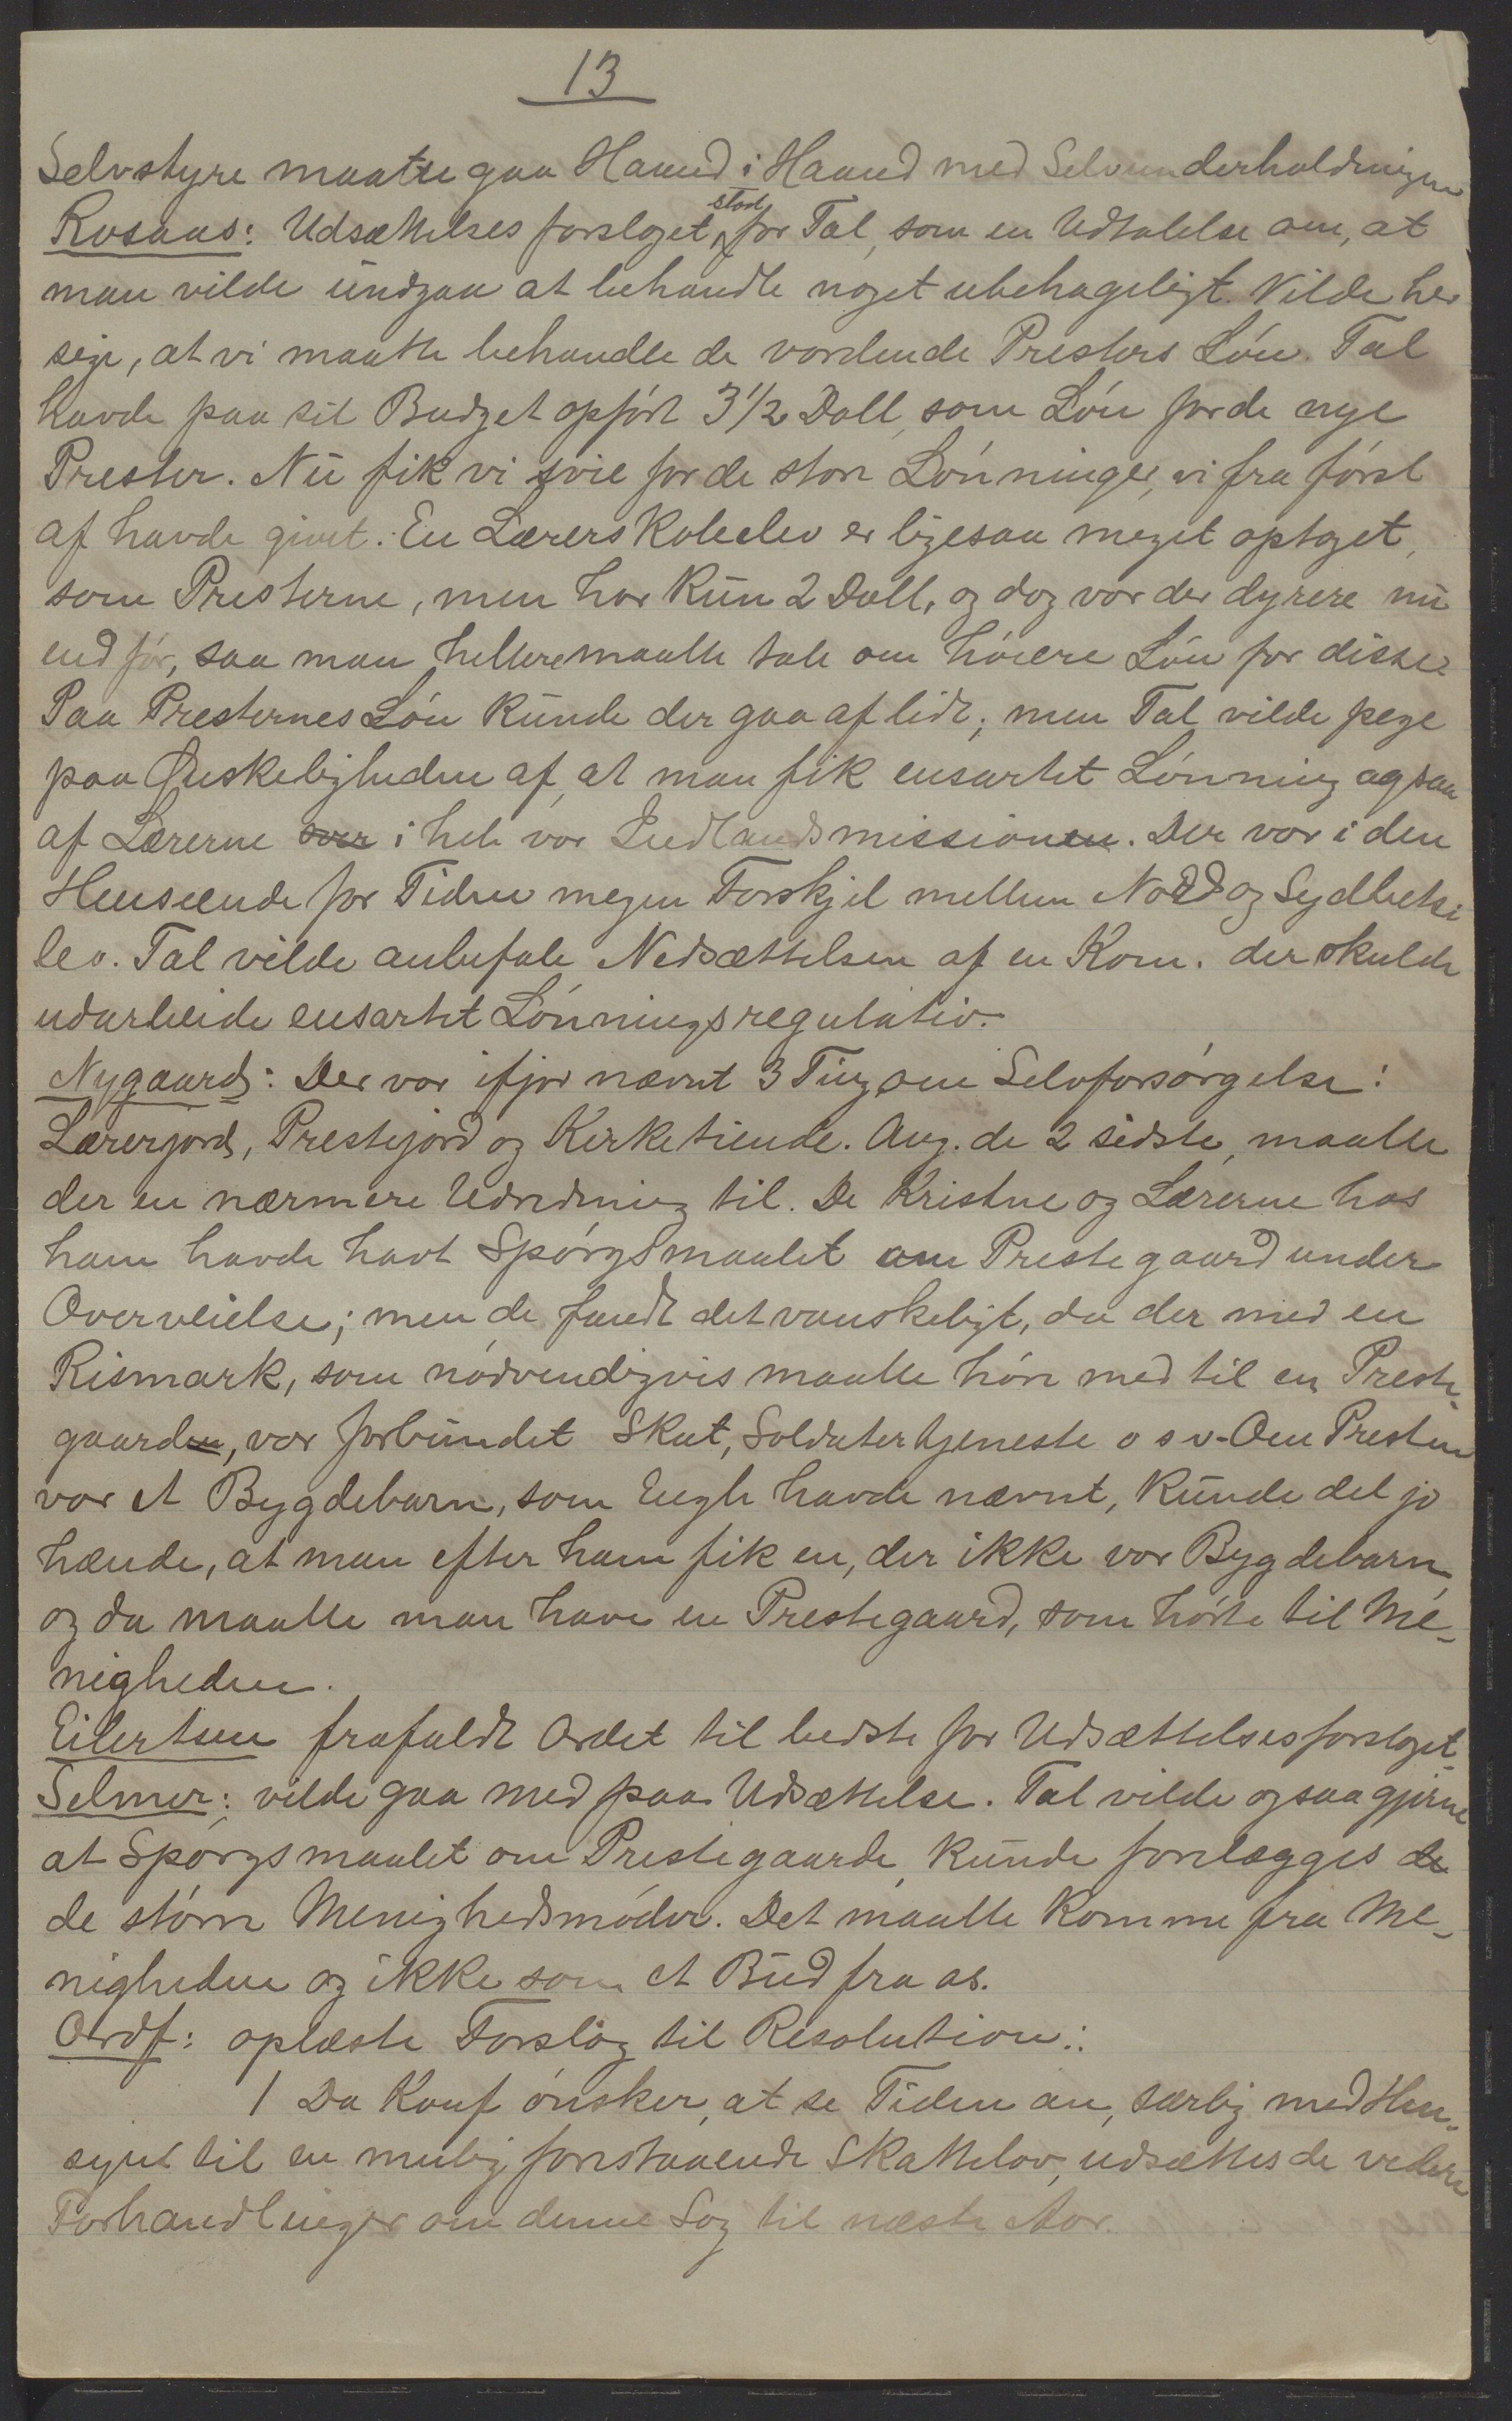 13
Selvstyre maatte gaa Haand i Haand med Selvunderholdningen
Rosaas: Udsættelsesforslaget stod for Tal, som en Udtalelse om, at
man vilde undgaa at behandle noget ubehageligt. Vilde her
sige, at vi maatte behandle de vordende Presters Løn. Tal
havde paa sit Budget opført 3 1/2 Doll, som Løn for de nye
Prester. Nu fik vi svie for de store Lønninger, vi fra først
af havde givet. En Lærerskoleelev er ligesaa meget optaget,
som Presterne, men har kun 2 Doll, og dog var der dyrere nu
end før, saa man hellere maatte tale om høiere Løn for disse.
Paa Presternes Løn kunde der gaa af lidt; men Tal vilde pege
paa Ønskeligheden af, at man fik ensartet Lønning ogsaa
af Lærerne over i hele vor Indlandsmissionen. Der var i den
Henseende for Tiden megen Forskjel mellem Nord og Sydbetsi
leo. Tal vilde anbefale Nedsættelsen af en Kom. der skulde
udarbeide ensartet Lønningsregulativ.
Nygaard: Der var ifjor nævnt 3 Ting om Selvforsørgelse:
Lærerjord, Prestejord og Kirketiende. Ang. de 2 sidste, maatte
der en nærmere Udredning til. De Kristne og Lærerne hos
ham havde havt Spørgsmaalet om Prestegaard under
Overveielse; men de fandt det vanskeligt, da der med en
Rismark, som nødvendigvis maatte høre med til en Preste-
gaarden, var forbundet Skat, Soldatertjeneste o s v. Om Presten
var et Bygdebarn, som Engh havde nævnt, kunde det jo
hænde, at man efter ham fik en, der ikke var Bygdebarn,
og da maatte man have en Prestegaard, som hørte til Me-
nigheden.
Eilertsen frafaldt Ordet til bedste for Udsættelsesforslaget.
Selmer: vilde gaa med paa Udsættelse. Tal vilde ogsaa gjerne
at Spørgsmaalet om Prestegaarde, kunde forelægges de
de større Menighedsmøder. Det maatte komme fra Me-
nigheden og ikke som et Bud fra os.
Ordf: oplæste Forslag til Resolution:
1 Da Konf ønsker, at se Tiden an, særlig med Hen-
synet til en mulig forestaaende Skattelov, udsættes de videre
Forhandlinger om denne Sag til næste Aar.